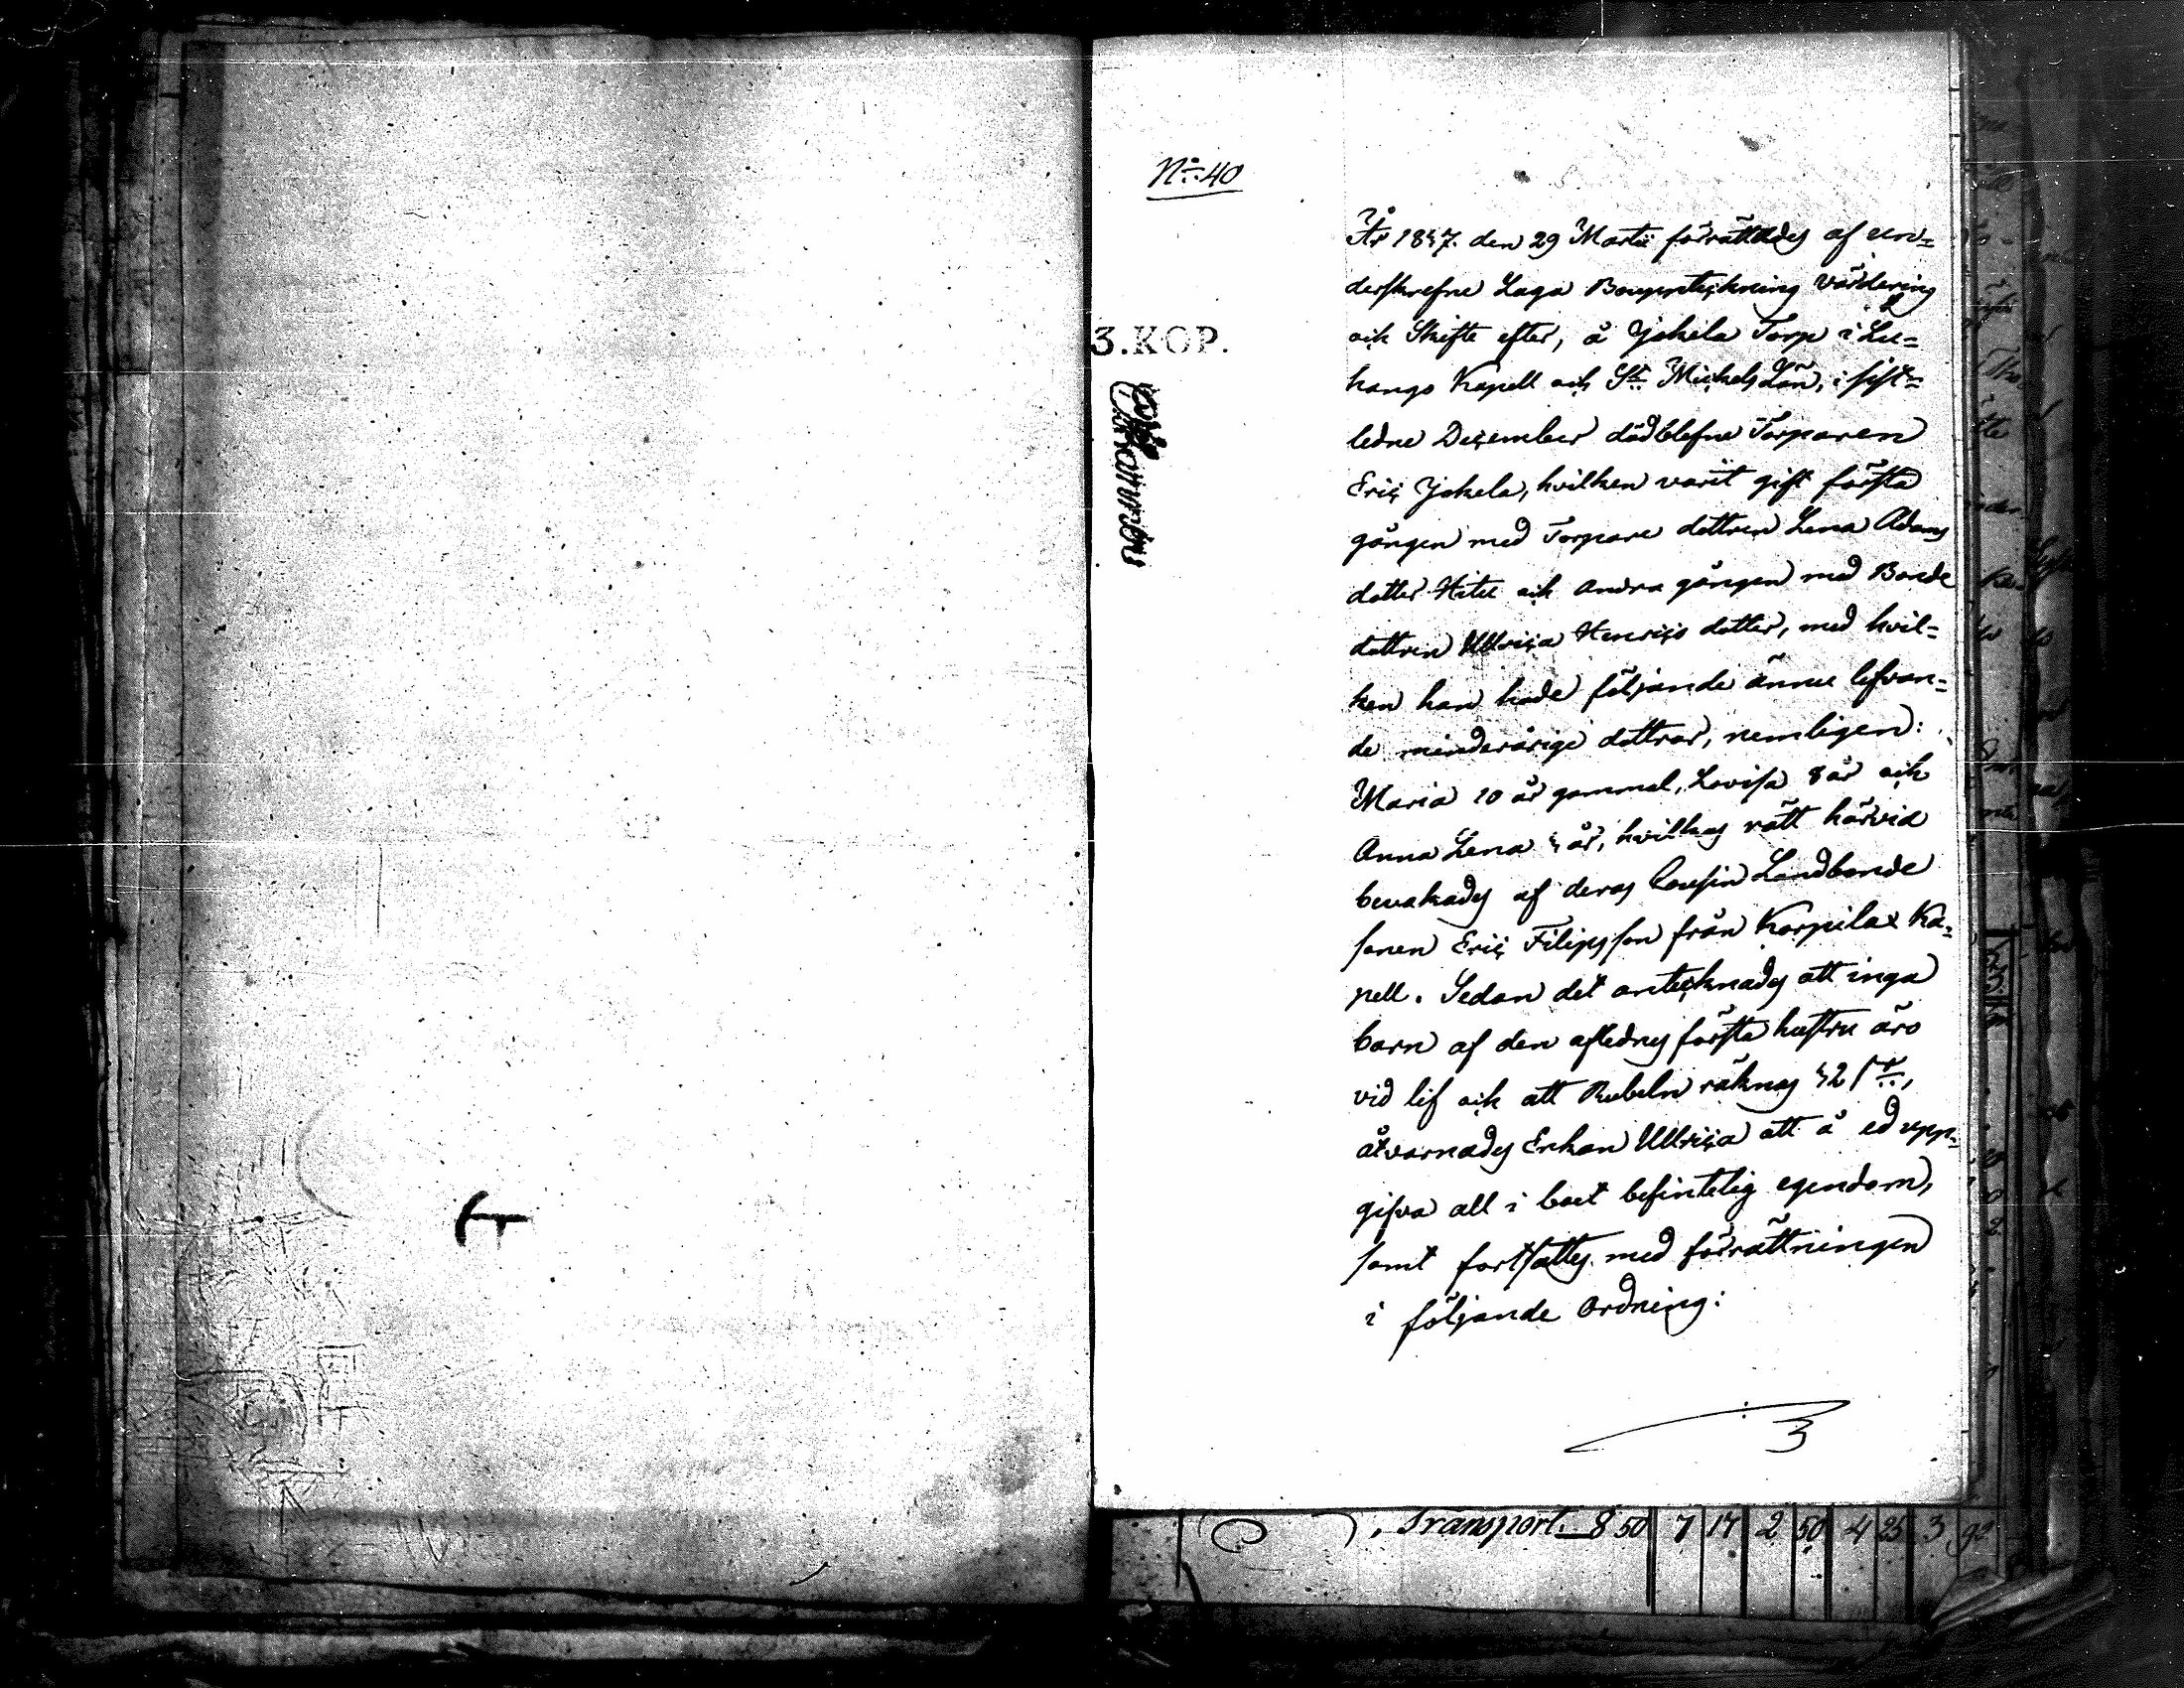 No 40
År 1847 den 29 Martii förrättades af un=
derskrefne Laga Bouppteckning värdering
3.KOP.
och Skifte efter, å Jokela Torp i Lu=
hango Kapell och St Michels Län, i sist=
ledne December dödblefne Torparen
Eric Jokela, hvilken varit gift första
gången med Torpare dottren Lena Adams
dotter Hitu och andra gången med Bonde
dottren Ullrica Henrics dotter, med hvil=
ken han hade följande ännu lefvan=
de minderårige dottrar, nemligen:
Maria 10 år gammal, Lovisa 8 år och
Anna Lena 4 år, hvilkas rätt härvid
bevakades af deras Cousin Landbonde
sonen Eric Filipsson från Korpilax Ka=
pell. Sedan det antecknades att inga
barn af den aflednes första hustru äro
vid lif och att Rubeln räknas 42 st,
åtvarnades Enkan Ullrica att å ed upp=
gifva all i boet befintelig egendom,
samt fortsattes med förrättningen
i följande ordning:
Transport. 8 50 7 17 2 50 4 25 3 92